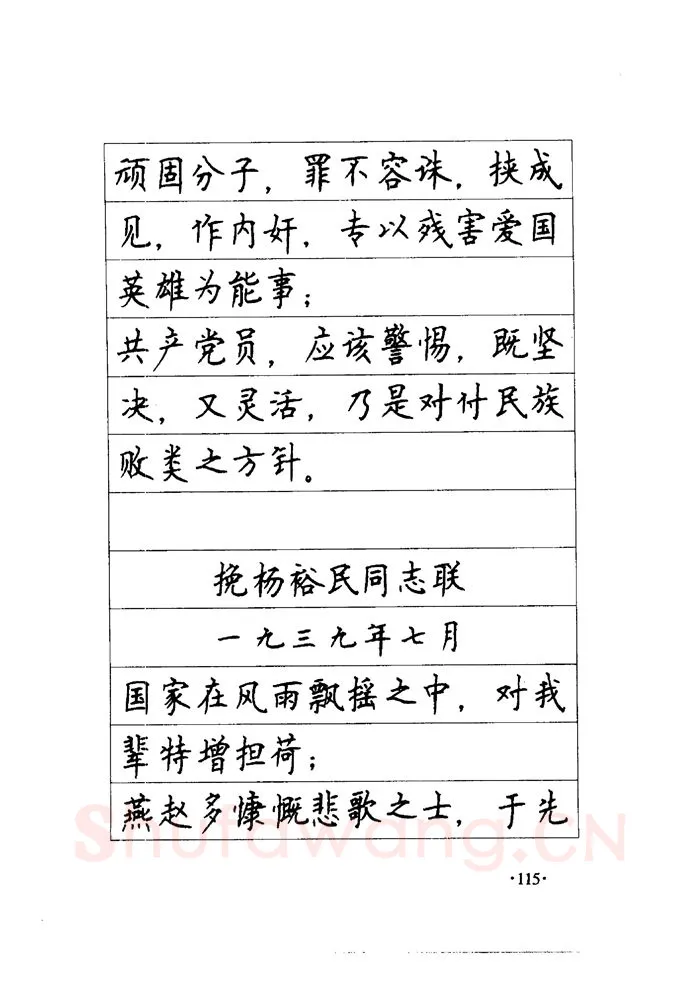 顽固分子，罪不容诛，挟成
见，作内奸，专以残害爱国
英雄为能事；
共产党员，应该警惕，既坚
决，又灵活，乃是对付民族
败类之方针。
挽杨裕民同志联
一九三九年七月
国家在风雨飘摇之中，对我
辈特增担荷；
燕赵多慷慨悲歌之士，于先
Shufawang.CN
·115·